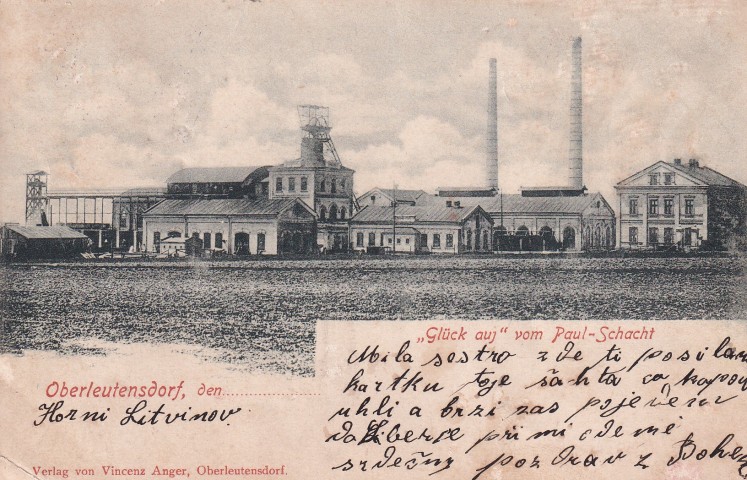 „Glück auf" vom Paul-Schacht
Mila sestro zde ti posilam
kartku toje šahta co kopou
uhli a brzi zas pojedem
do Liberce přimi ode mě
srdečny pozdrav z Bohem
Oberleutensdorf, den
Horni Litvinov
Verlag von Vincenz Anger, Oberleutensdorf.